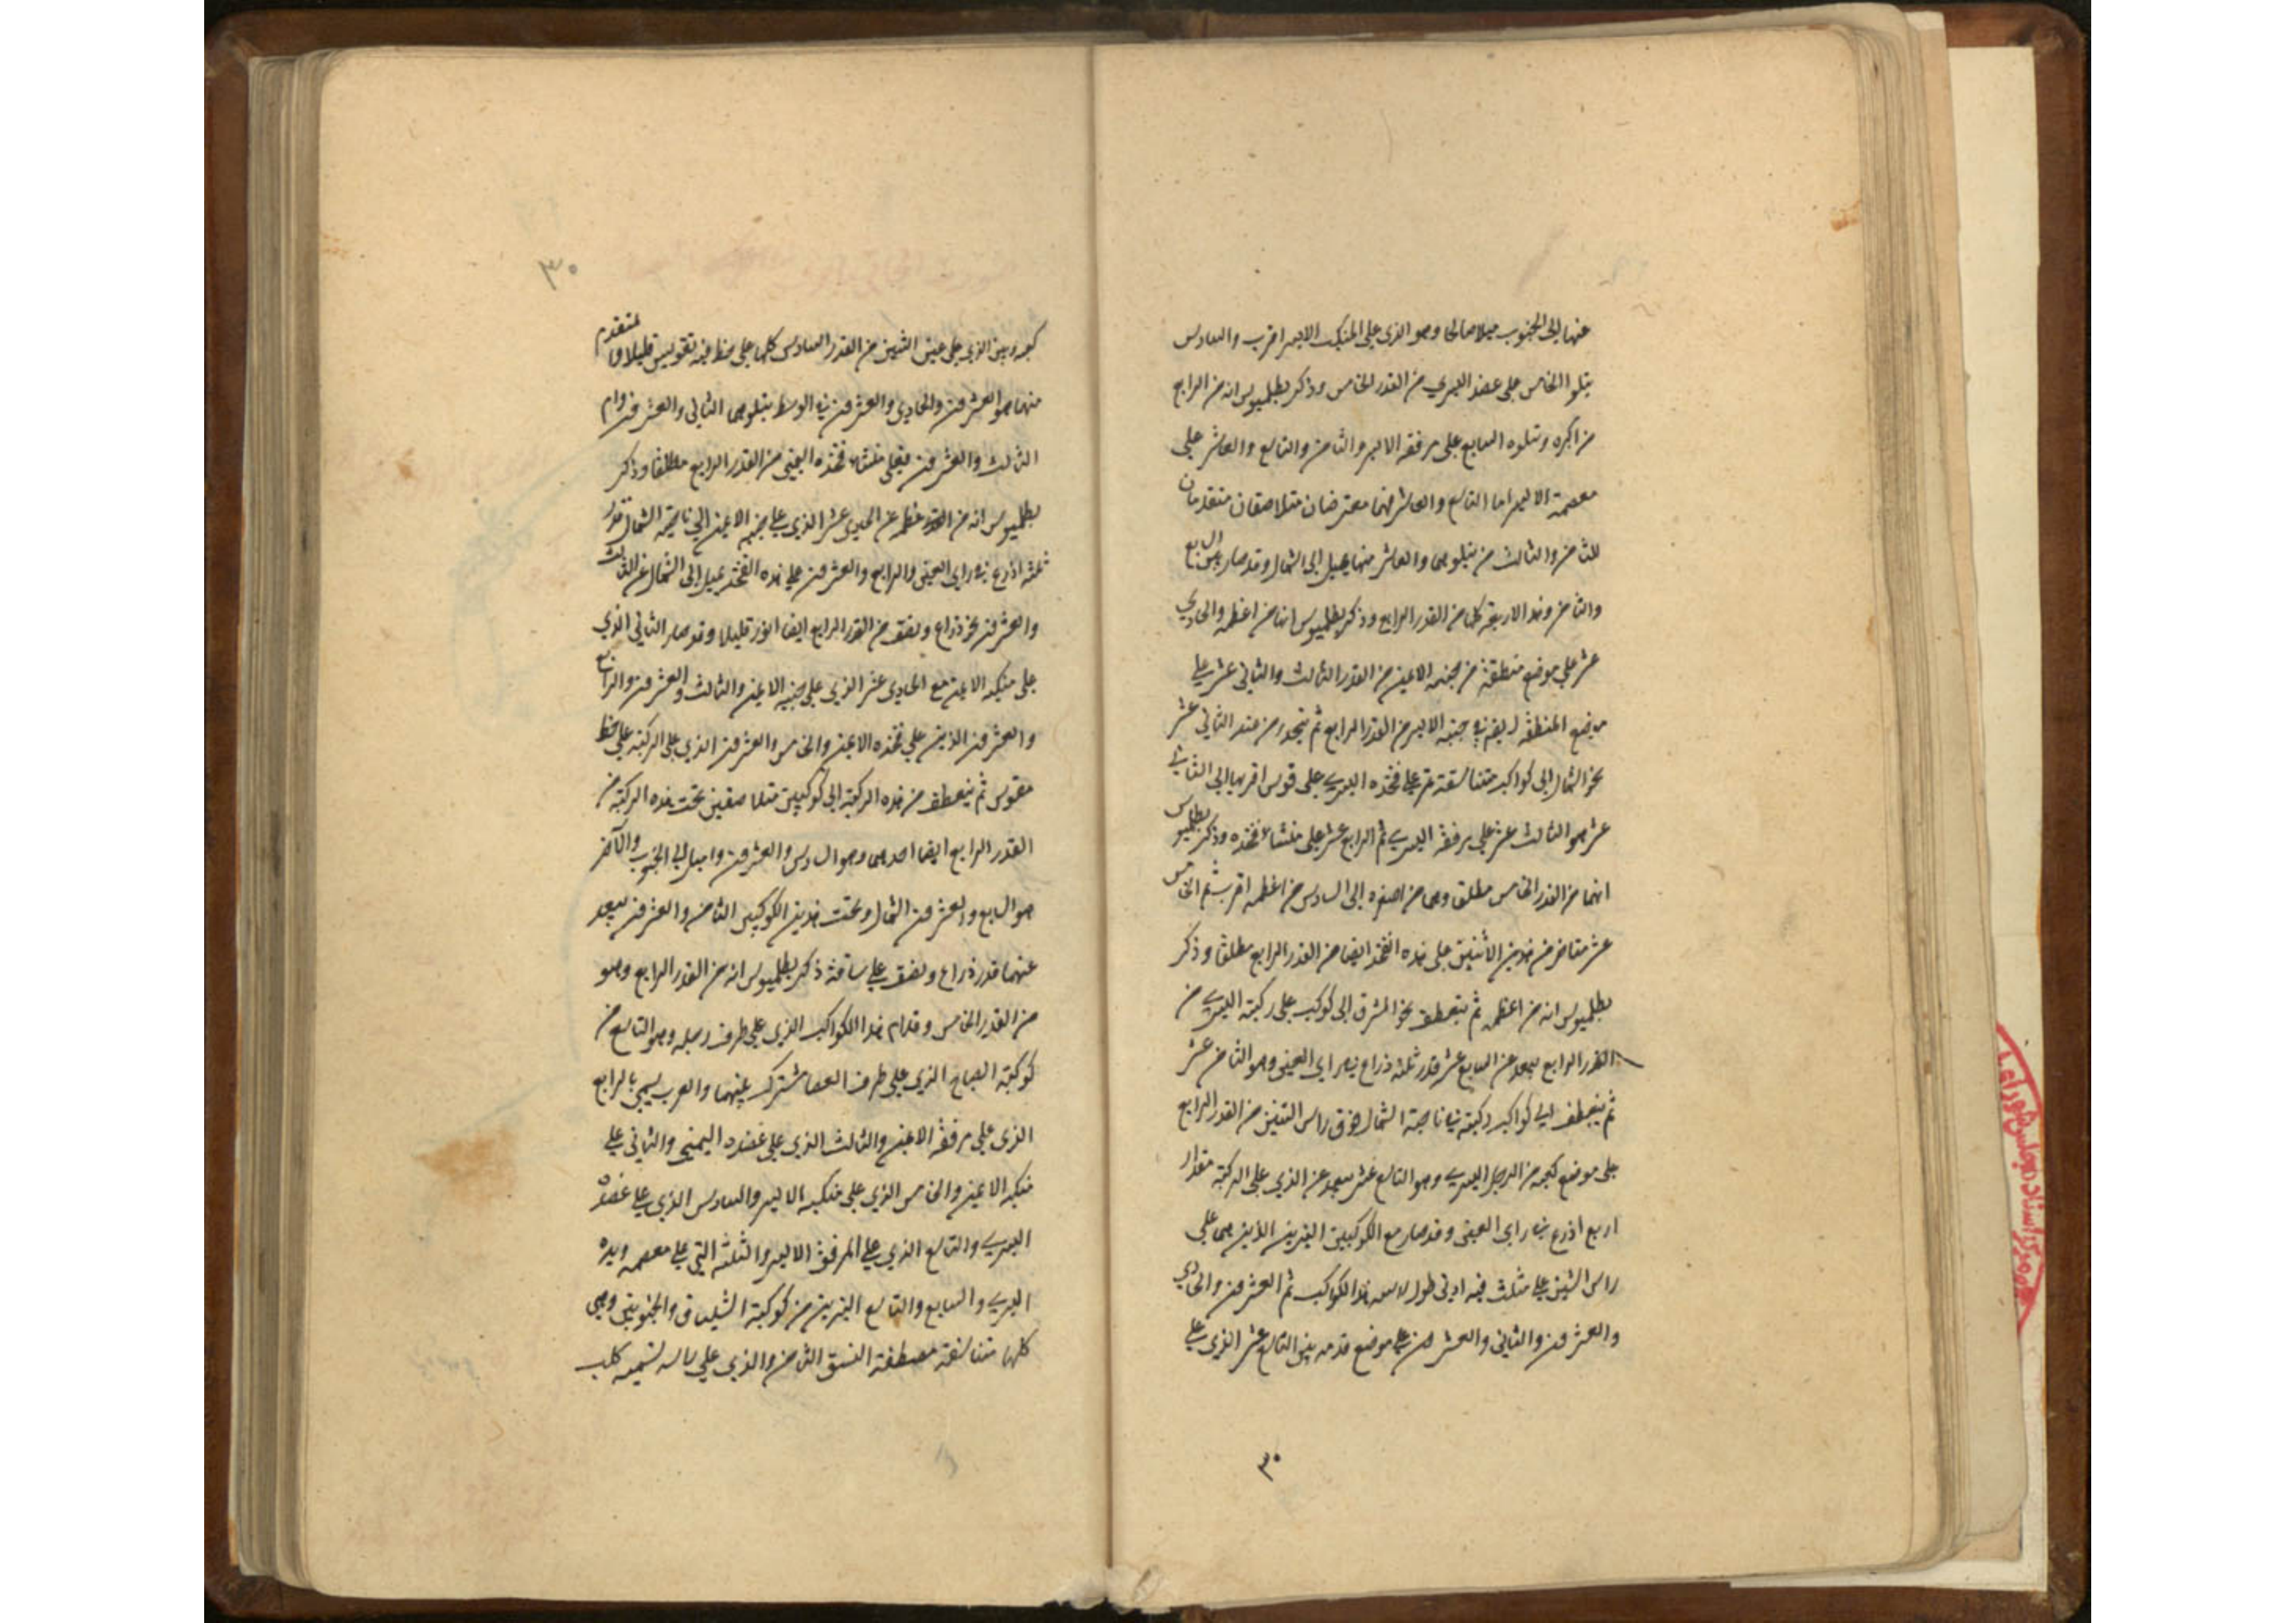 عنها إلى الجنوب ميلا صالحا وهو الذي على المنكب الايسر اقرب والسادس
يتلو الخامس على عضد اليسرى من القدر الخامس وذكر بطلميوس انه من الرابع
من اكبره ويتلوه السابع على مرفقه الايسر والثامن والتاسع والعاشر على
معصمه الايسر اما التاسع والعاشر فهما معترضان متلاصقان متقدمان
للثامن والثالث من يتلوهما والعاشر منهما يميل إلى الشمال وقد صار مع السابع
والثامن وهذا الاربعة كلها من القدر الرابع وذكر بطلميوس انها من اعظمه والحادي
عشر على موضع منطقته من جنبه الايمن من القدر الثالث والثاني عشر على
موضع المنطقة ايضا في جنبه الايسر من القدر الرابع ثم ينحدر من عند الثاني عشر
نحو الشمال إلى كواكب متناسقة تمر على فخذه اليسرى على قوس اقربها إلى الثاني
عشر هو الثالث عشر على مرفقه اليسرى ثم الرابع عشر على منشاء فخذه وذكر بطلميوس
انهما من القدر الخامس مطلق وهما من اصغره إلى السادس من اعظمه اقرب ثم الخامس
عشر متاخر من هذين الأثنين على هذه الفخذ ايضا من القدر الرابع مطلقا وذكر
بطلميوس انه من اعظمه ثم ينعطف نحو المشرق إلى كوكب على ركبته اليسرى من
القدر الرابع يبعد عن السابع عشر قدر ثلثة ذراع في راي العين وهو الثامن عشر
ثم ينعطف إلى كواكب ركبته في ناحية الشمال فوق راس التنين من القدر الرابع
على موضع كعبه من الرجل اليسرى وهو التاسع عشر يبعد عن الذي على الركبة مقدار
اربع اذرع في راي العين وقد صار مع الكوكبين النيرين الذين هما على
راس التنين على مثلث فيه ادنى طول لاسه هذا الكوكب ثم العشرون والحادي
والعشرون والثاني والعشرون على موضع قدمه بين التاسع عشر الذي على
٣٠
٣٠
كعبه وبين الذي على عين التنين من القدر السادس كلها على خط فيه تقويس قليلا والمتقدم
منها هو العشرون والحادي والعشرون في الوسط يتلوهما الثاني والعشرون واما
الثالث والعشرون فعلى منشاء فخذه اليمنى من القدر الرابع مطلقا وذكر
بطلميوس انه من اعظمه عن الحادي عشر الذي على جنبه الايمن إلى ناحية الشمال قدر
ثلثة اذرع في راي العين والرابع والعشرون على هذه الفخذ يميل إلى الشمال عن الثالث
والعشرون نحو ذراع ونصف من القدر الرابع ايضا انور قليلا وقد صار الثاني الذي
على منكبه الايمن مع الحادي عشر الذي على جنبه الايمن والثالث والعشرون والرابع
والعشرون الذين على فخذه الايمن والخامس والعشرون الذي على الركبة على خط
مقوس ثم ينعطف من هذه الركبة إلى كوكبين متلاصقين تحت هذه الركبة من
القدر الرابع ايضا احدهما وهو السادس والعشرون واميل إلى الجنوب والآخر
هو السابع والعشرون الشمال وتحت هذين الكوكبين الثامن والعشرون يبعد
عنهما قدر ذراع ونصف على ساقه ذكر بطلميوس انه من القدر الرابع وهو
من القدر الخامس وقدام هذا الكواكب الذي على طرف رجله وهو التاسع من
كوكبة الصباح الذي على طرف العصا مشترك بينهما والعرب يسمى بالرابع
الذي على مرفقه الايمن والثالث الذي على عضده اليمنى والثاني على
منكبه الايمن والخامس الذي على منكبه الايسر والسادس الذي على عضده
اليسرى والتاسع الذي على المرفق الايسر والثلثة التي على معصمه ويده
اليسرى والسابع والتاسع النيرين من كوكبة الشلياق والجنوبيتى وهي
كلها متناسقة مصطفة النسق الثامن والذي على راسه تسميه كلب